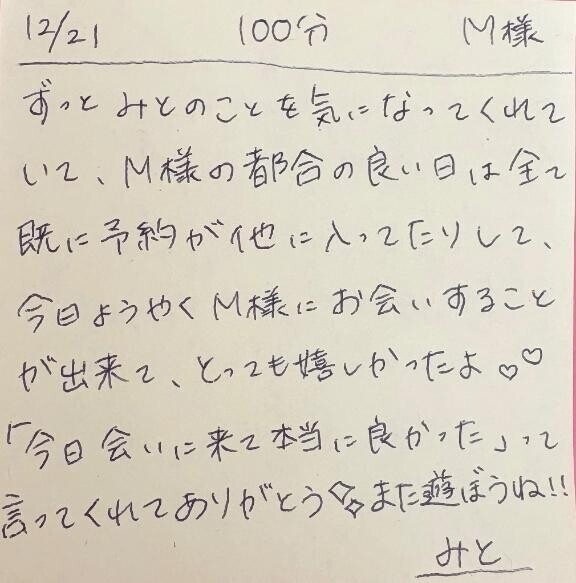 12/21 100分 M様
ずっとみとのことを気になってくれて
いて、M様の都合の良い日は全て
既に予約が他に入ってたりして、
今日ようやくM様にお会いすること
が出来て、とっても嬉しかったよ♡♡
「今日会いに来て本当に良かった」って
言ってくれてありがとう✨また遊ぼうね!!
みと